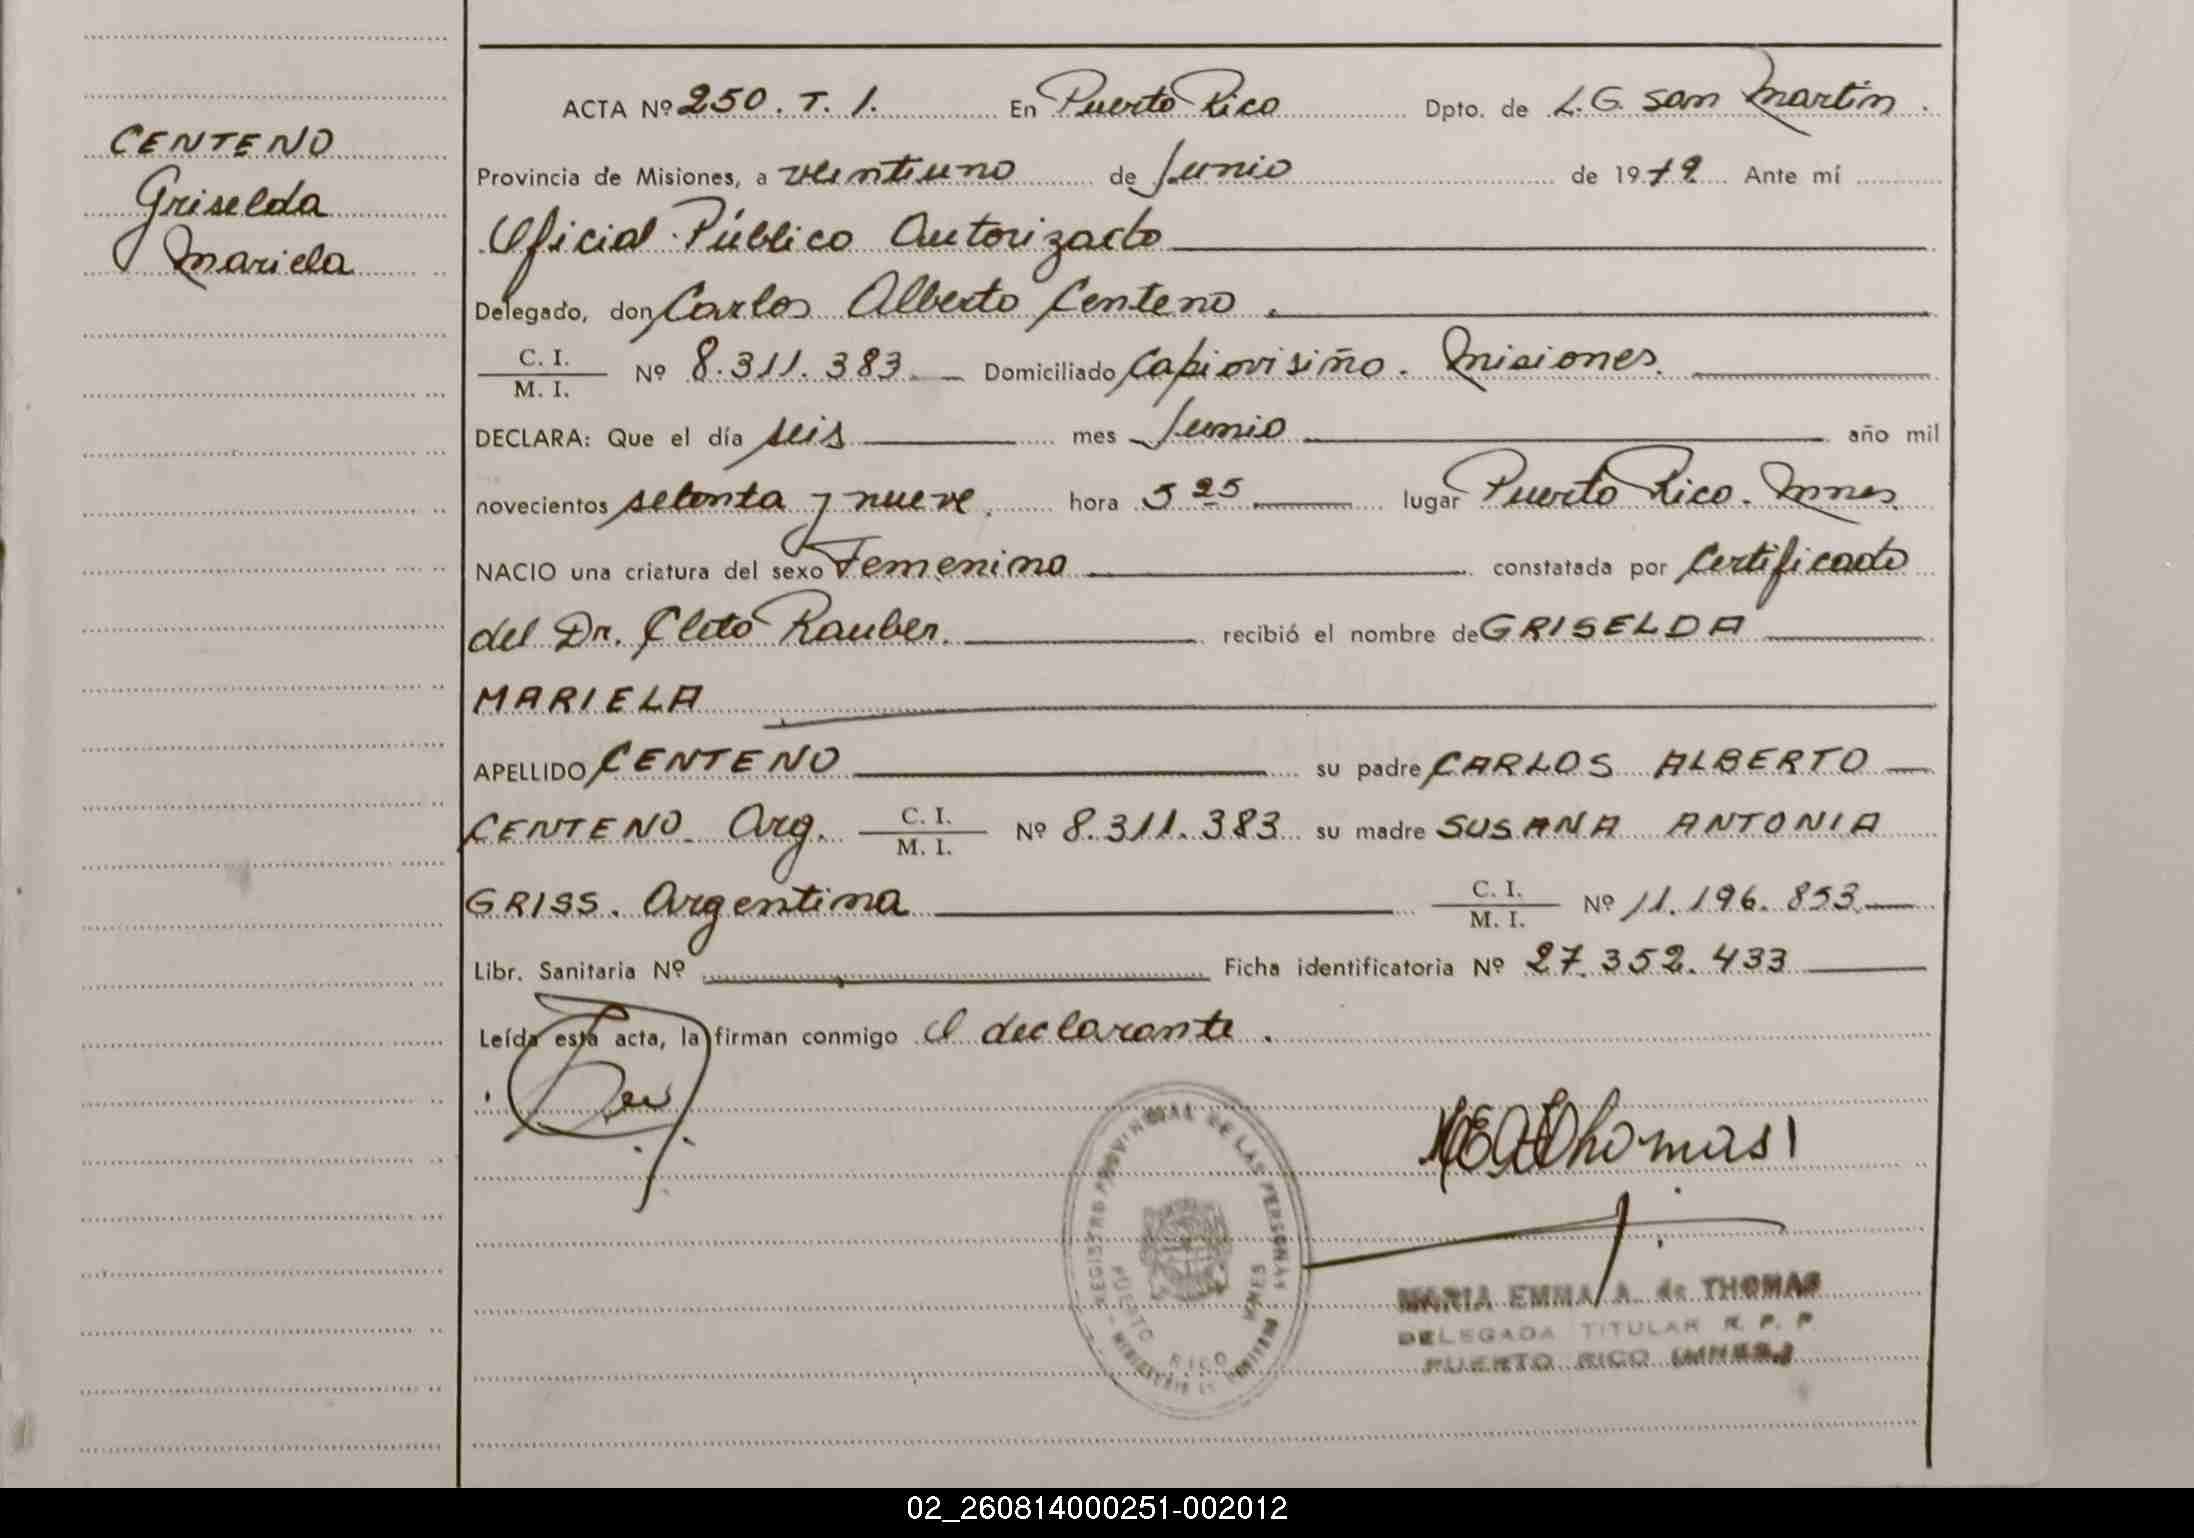 CENTENO
Griselda
Mariela
ACTA Nº 250. T. 1. En Puerto Rico Dpto. de L.G. San Martin.
Provincia de Misiones, a veintiuno de Junio de 1979 Ante mí
Oficial Público Autorizado
Delegado, don Carlos Alberto Centeno.
C. I.
M. I. Nº 8.311.383. Domiciliado Capiovisiño. Misiones.
DECLARA: Que el día seis mes Junio año mil
novecientos setenta y nueve. hora 5 25 lugar Puerto Rico. Mnes.
NACIO una criatura del sexo Femenino constatada por Certificado
del Dr. Cleto Rauber. recibió el nombre de GRISELDA
MARIELA
APELLIDO CENTENO su padre CARLOS ALBERTO
CENTENO. Arg. C. I.
M. I. Nº 8.311.383 su madre SUSANA ANTONIA
GRISS. Argentina C. I.
M. I. Nº 11.196.853.
Libr. Sanitaria Nº Ficha identificatoria Nº 27.352.433
Leída esta acta, la firman conmigo el declarante.
REGISTRO PROVINCIAL DE LAS PERSONAS
PUERTO RICO MNES
MINISTERIO DE GOBIERNO
MARIA EMMA A. de THOMAS
DELEGADA TITULAR R. P. P.
PUERTO RICO (MNES.)
02_260814000251-002012